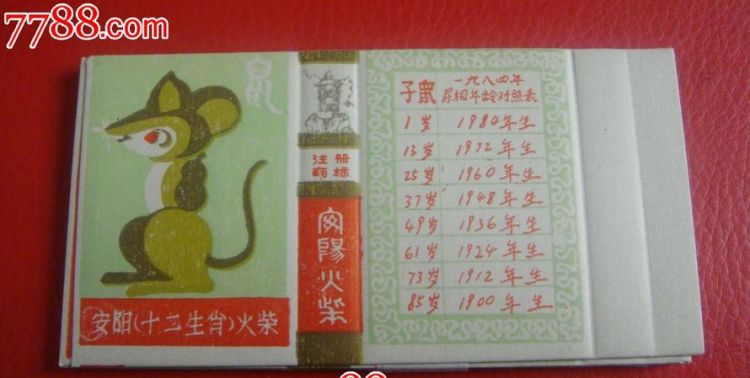 7788.com
鼠
安阳(十二生肖)火柴
注册
商标
安陽火柴
子鼠
一九八四年
属相年龄对照表
1岁 1984年生
13岁 1972年生
25岁 1960年生
37岁 1948年生
49岁 1936年生
61岁 1924年生
73岁 1912年生
85岁 1900年生